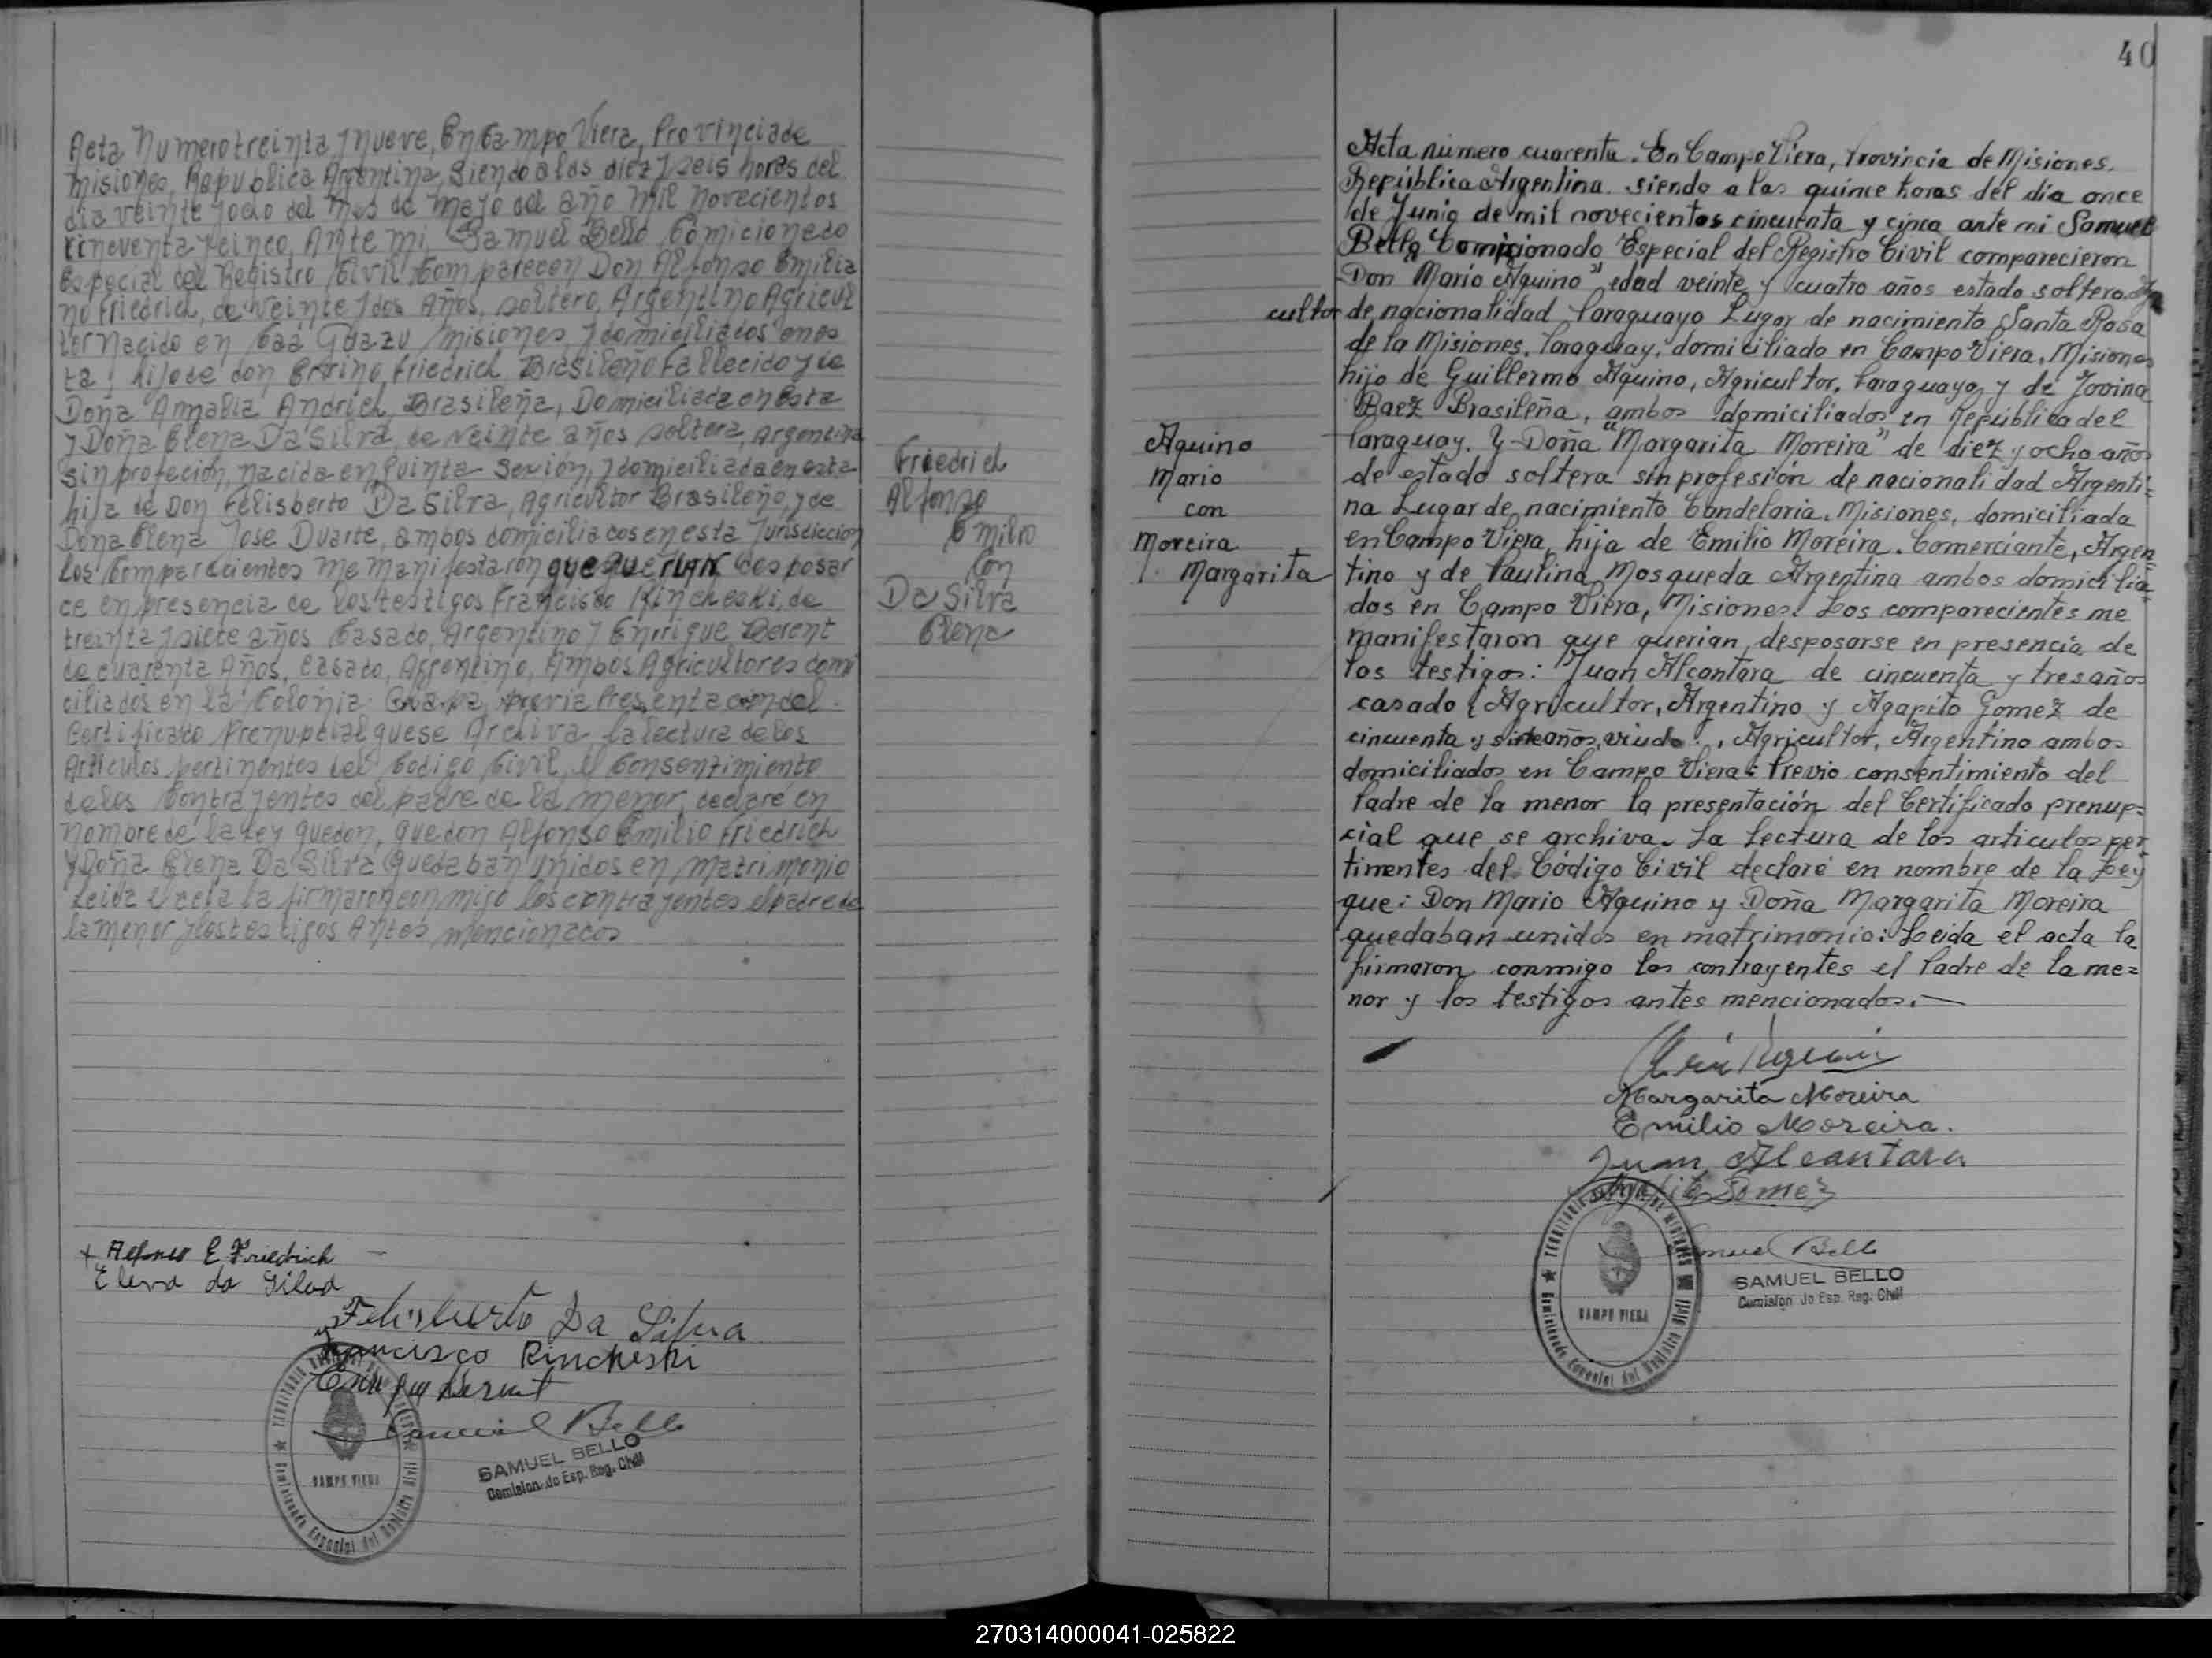 Acta Numero treinta y nueve, En Campo Viera, Provincia de
Misiones, Republica Argentina, Siendo a las diez y seis horas del
dia veinte y ocho del mes de Mayo del año mil novecientos
cincuenta y cinco, Ante mi Samuel Bello Comicionado
Especial del Registro Civil Comparecen Don Alfonso Emilia
no Friedrich, de Veinte y dos Años, soltero, Argentino Agricul
tor Nacido en Caá Guazu Misiones y domiciliados en es
ta, hijo de don Friedrich Brasileño Fallecido y de
Doña Amalia Andrich, Brasileña, Domiciliada en Esta
y Doña Elena Da Silva, de Veinte años soltera, Argentina
sin profeción, nacida en quinta Sexión, y domiciliada en esta
hija de Don Felisberto Da Silva, Agricultor Brasileño, y de
Doña Elena Jose Duarte, ambos domiciliados en esta Jurisdiccion
Los Comparecientes me manifestaron que querian desposar
ce en presencia de los testigos Francisco Rincheski, de
treinta y siete años Casado, Argentino y Enrrique Berent
de cuarenta Años, casado, Argentino, Ambos Agricultores domi
ciliados en la Colonia previa Presentacion del
Certificado Prenupcial que se Archiva la lectura de los
Articulos pertinentes del Codigo Civil, el Consentimiento
de los Contrayentes del padre de la menor, declaré en
nombre de la Ley quedon, quedon Alfonso Emilio Friedrich
y Doña Elena Da Silva quedaban unidos en matrimonio
Leida el acta la firmaron conmigo los contrayentes el padre de
la menor y los testigos Antes mencionados
Friedrich
Alfonso
Emilio
Con
Da Silva
Elena
+ Alfonso E Friedrich
Elena da Silva
Felisberto Da Silva
Francisco Rincheski
Berent
Samuel Bello
SAMUEL BELLO
Comision do Esp. Reg. Civil
CAMPO VIERA
Comisionado Especial del Registro Civil
40
Acta número cuarenta. En Campo Viera, Provincia de Misiones.
República Argentina. siendo a las quince horas del día once
de Junio de mil novecientos cincuenta y cinco ante mi Samuel
Bello Comicionado Especial del Registro Civil comparecieron
Don Mario Aquino" edad veinte y cuatro años estado soltero
cultor de nacionalidad Paraguayo Lugar de nacimiento Santa Rosa
de la Misiones. Paraguay, domiciliado en Campo Viera, Misiones
hijo de Guillermo Aquino, Agricultor, Paraguayo, y de Jovina
Baez Brasileña, ambos domiciliados en República del
Paraguay. Y Doña "Margarita Moreira" de diez y ocho años
de estado soltera sin profesión de nacionalidad Argenti=
na Lugar de nacimiento Candelaria. Misiones, domiciliada
en Campo Viera, hija de Emilio Moreira. Comerciante, Argen=
tino y de Paulina Mosqueda Argentina ambos domicilia=
dos en Campo Viera, Misiones. Los comparecientes me
manifestaron que querian desposarse en presencia de
los testigos: Juan Alcantara de cincuenta y tres años
casado, Agricultor, Argentino y Agapito Gomez de
cincuenta y siete años, viudo., Agricultor, Argentino ambos
domiciliados en Campo Viera: Previo consentimiento del
Padre de la menor la presentación del Certificado prenup=
cial que se archiva. La Lectura de los articulos per=
tinentes del Código Civil declaré en nombre de la Ley
que: Don Mario Aquino y Doña Margarita Moreira
quedaban unidos en matrimonio: Leida el acta la
firmaron conmigo los contrayentes el Padre de la me=
nor y los testigos antes mencionados.
Aquino
Mario
con
Moreira
Margarita
Margarita Moreira
Emilio Moreira.
Juan Alcantara
Agapito Gomez
Samuel Bello
SAMUEL BELLO
Comision do Esp. Reg. Civil
CAMPO VIERA
Comisionado Especial del Registro Civil
270314000041-025822